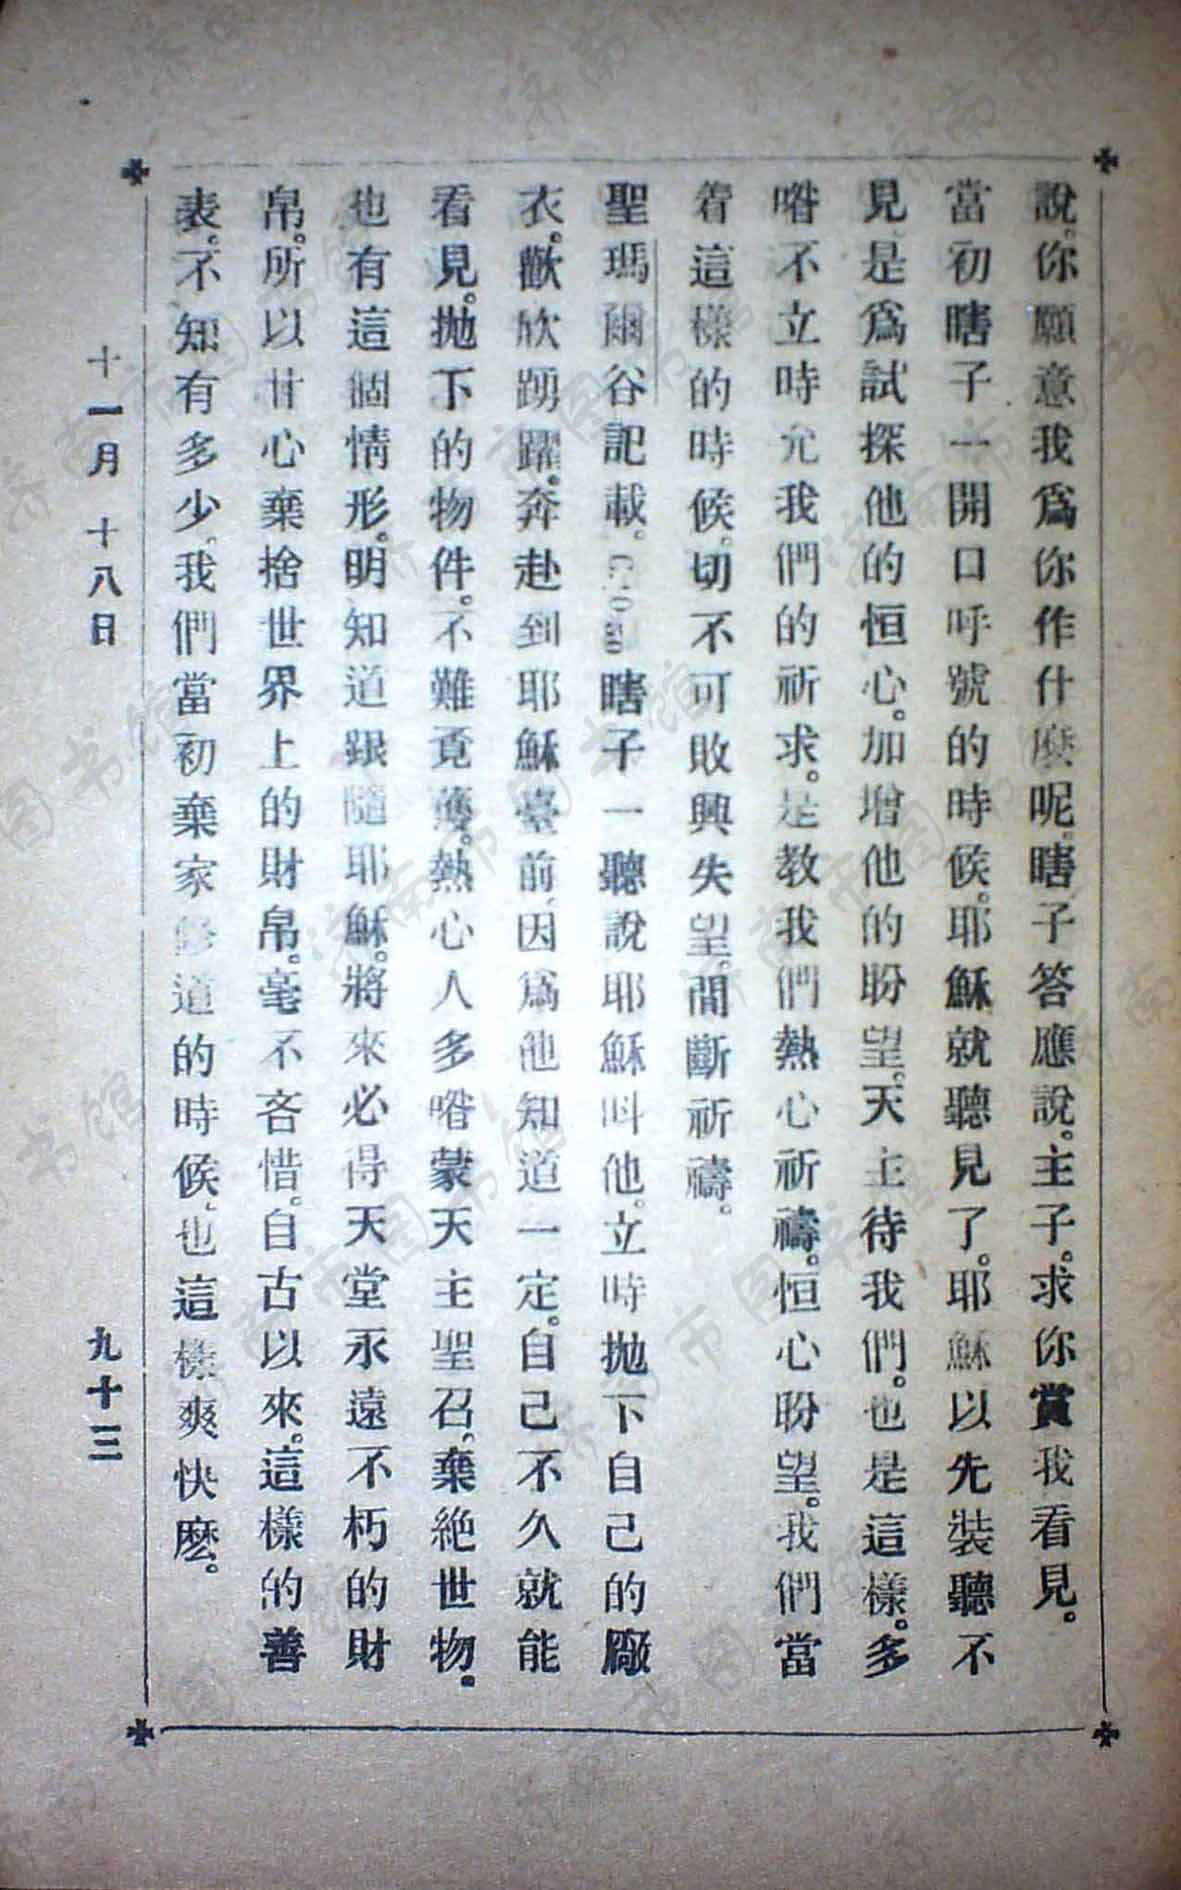 說。你願意我爲你作什麼呢。瞎子答應說。主子。求你賞我看見。
當初瞎子一開口呼號的時候。耶穌就聽見了。耶穌以先裝聽不
見。是爲試探他的恒心。加增他的盼望。天主待我們。也是這樣。多
喒不立時允我們的祈求。是教我們熱心祈禱。恒心盼望。我們當
着這樣的時候。切不可敗興失望。間斷祈禱。
聖瑪爾谷記載。瞎子一聽說耶穌呌他。立時拋下自己的廠
衣。歡欣踴躍。奔赴到耶穌臺前。因爲他知道一定。自己不久就能
看見。拋下的物件。不難覔獲。熱心人多喒蒙天主聖召。棄絕世物。
也有這個情形。明知道跟隨耶穌。將來必得天堂永遠不朽的財
帛。所以甘心棄捨世界上的財帛。毫不吝惜。自古以來。這樣的善
表。不知有多少。我們當初棄家修道的時候。也這樣爽快麼。
十一月 十八日 九十三